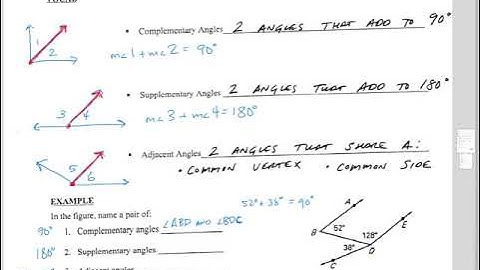 VOCAB
1 2
• Complementary Angles 2 ANGLES THAT ADD TO 90°
m∠1+m∠2 = 90°
3 4
• Supplementary Angles 2 ANGLES THAT ADD TO 180°
m∠3+m∠4=180°
5 6
• Adjacent Angles 2 ANGLES THAT SHARE A:
• COMMON VERTEX • COMMON SIDE
EXAMPLE
52°+38° = 90°
In the figure, name a pair of:
90° 1. Complementary angles ∠ABD AND ∠BDC
180° 2. Supplementary angles
3. Adjacent angles
A
B 52° 128° E
38° D
C